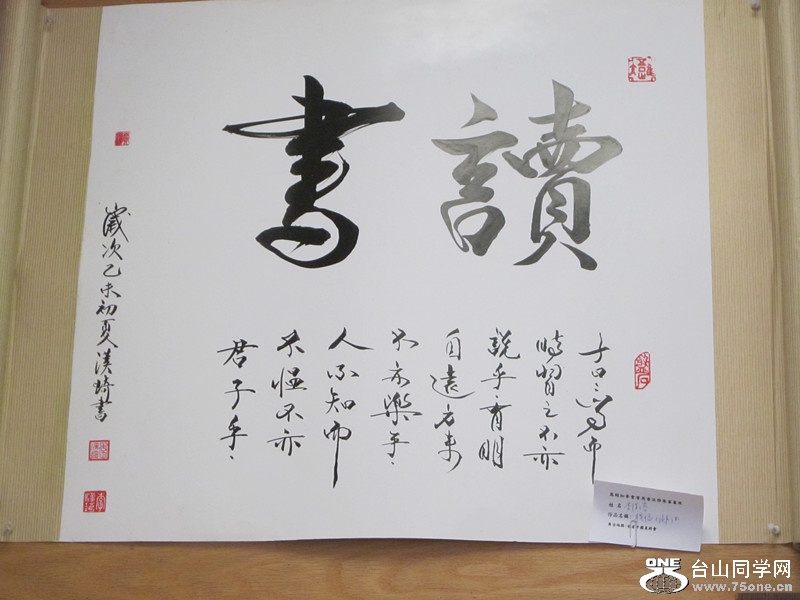 讀書
子曰學而
時習之不亦
說乎有朋
自遠方來
不亦樂乎
人不知而
不慍不亦
君子乎
歲次乙未初夏漢琦書
姓名
作品名稱
ONE
台山同学网
www.75one.cn